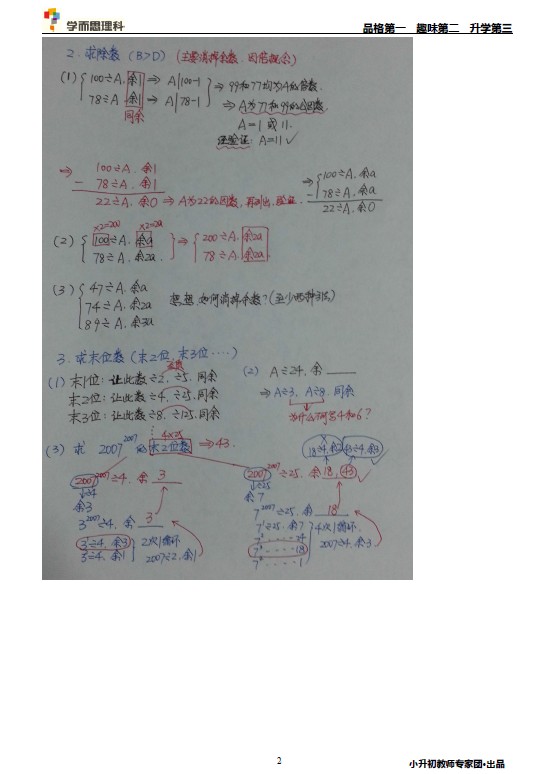 学而思理科
品格第一 趣味第二 升学第三
2. 求除数 (B>D) (主要消掉余数, 回范概念)
(1) { 100÷A, 余1 ⇒ A|100-1
78÷A, 余1 ⇒ A|78-1
同余
⇒ 99和77均为A的倍数
⇒ A为77和99的公因数
A=1 或 11.
经验证: A=11 ✓
⇒ 100÷A, 余1
- 78÷A, 余1
22÷A, 余0 ⇒ A为22的因数, 再列出, 验证.
⇒ { 100÷A, 余a
- 78÷A, 余a
22÷A, 余0
×2=200 ×2=2a
(2) { 100÷A, 余a
78÷A, 余2a
⇒ { 200÷A, 余2a
78÷A, 余2a
(3) { 47÷A, 余a
74÷A, 余2a
89÷A, 余3a
想想, 如何消掉余数? (至少两种方法)
3. 求末位数 (末2位, 末3位····)
(1) 末1位: 让此数÷2, ÷5, 同余
末2位: 让此数÷4, ÷25, 同余
末3位: 让此数÷8, ÷125, 同余
(2) A÷24, 余
⇒ A÷3, A÷8, 同余
为什么不可写4和6?
(3) 求 2007^2007 的末2位数 ⇒ 43.
4×25
18÷4, 余2 43÷4, 余3 ✓
2007^2007÷4, 余 3
↓÷4
余3
3^2007÷4, 余 3
3^1÷4, 余3
3^2÷4, 余1
2次1循环
2007÷2, 余1
2007^2007÷25, 余18, 43 ✓
↓÷25
余7
7^2007÷25, 余 18
7^1÷25, 余7
7^2·····24
7^3·····18
7^4·····1
4次1循环
2007÷4, 余3
2
小升初教师专家团•出品